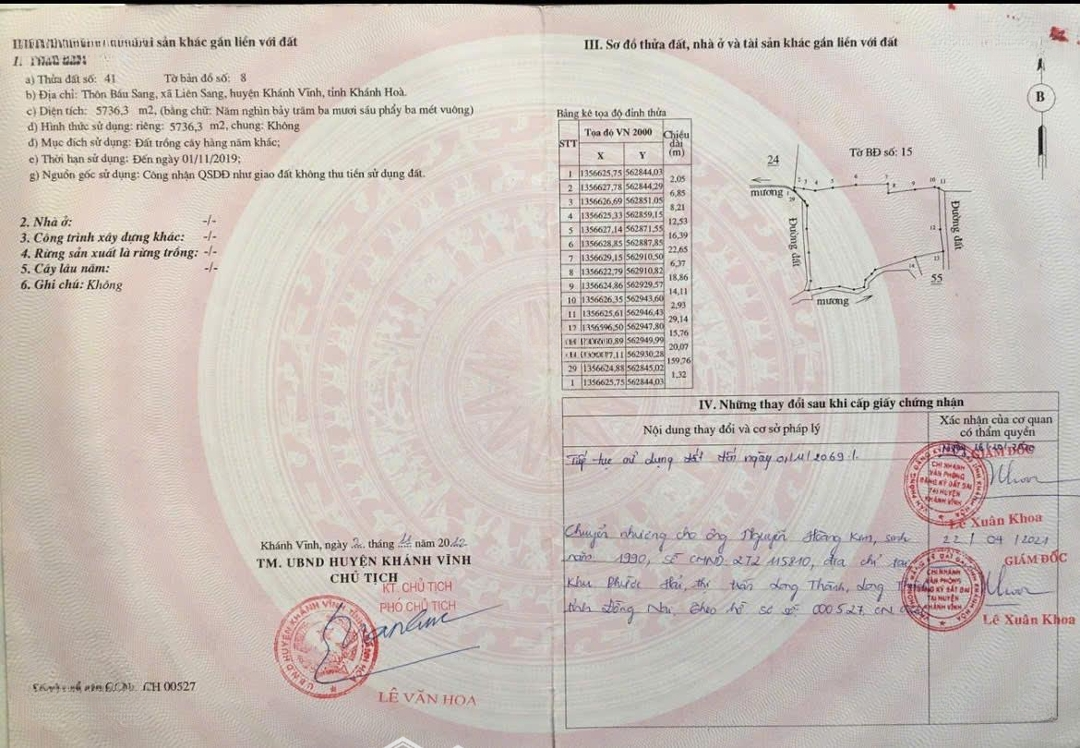 sản khác gắn liền với đất
1.
a) Thửa đất số: 41 Tờ bản đồ số: 8
b) Địa chỉ: Thôn Bầu Sang, xã Liên Sang, huyện Khánh Vĩnh, tỉnh Khánh Hoà.
c) Diện tích: 5736,3 m2, (bằng chữ: Năm nghìn bảy trăm ba mươi sáu phẩy ba mét vuông)
d) Hình thức sử dụng: riêng: 5736,3 m2, chung: Không
đ) Mục đích sử dụng: Đất trồng cây hàng năm khác;
e) Thời hạn sử dụng: Đến ngày 01/11/2019;
g) Nguồn gốc sử dụng: Công nhận QSDĐ như giao đất không thu tiền sử dụng đất.
2. Nhà ở: -/-
3. Công trình xây dựng khác: -/-
4. Rừng sản xuất là rừng trồng: -/-
5. Cây lâu năm: -/-
6. Ghi chú: Không
Khánh Vĩnh, ngày tháng 11 năm 2012
TM. UBND HUYỆN KHÁNH VĨNH
CHỦ TỊCH
KT. CHỦ TỊCH
PHÓ CHỦ TỊCH
U.B.N.D HUYỆN KHÁNH VĨNH
LÊ VĂN HOA
CH 00527
III. Sơ đồ thửa đất, nhà ở và tài sản khác gắn liền với đất
Bảng kê tọa độ đỉnh thửa
STT Tọa độ VN 2000 Chiều dài (m)
X Y
1 1356625,75 562844,03
2,05
2 1356627,78 562844,29
6,85
3 1356626,69 562851,05
8,21
4 1356625,33 562859,15
12,53
5 1356627,14 562871,55
16,39
6 1356628,85 562887,85
22,65
7 1356629,15 562910,50
6,37
8 1356622,79 562910,82
18,86
9 1356624,86 562929,57
14,11
10 1356626,35 562943,60
2,93
11 1356625,61 562946,43
29,14
12 1356596,50 562947,80
15,76
562949,99
20,07
562930,28
159,76
29 1356624,88 562845,02
1,32
1 1356625,75 562844,03
B
24
Tờ BĐ số: 15
mương
1 2 3 4 5 6 7 8 9 10 11
29
Đường đất
Đường đất
12
13
14
55
mương
IV. Những thay đổi sau khi cấp giấy chứng nhận
Nội dung thay đổi và cơ sở pháp lý
Xác nhận của cơ quan
có thẩm quyền
Tiếp tục sử dụng đất đến ngày 01/11/2069.
GIÁM ĐỐC
CHI NHÁNH
VĂN PHÒNG
ĐĂNG KÝ ĐẤT ĐAI
TẠI HUYỆN
KHÁNH VĨNH
Lê Xuân Khoa
Chuyển nhượng cho ông Nguyễn Hoàng Kim, sinh
22/ 04 /2021
năm 1990, số CMND 272 115810, địa chỉ tại
GIÁM ĐỐC
Khu Phước Hải, thị trấn Long Thành, Long
tỉnh Đồng Nai, theo hồ sơ số 000527.CN
CHI NHÁNH
VĂN PHÒNG
ĐĂNG KÝ ĐẤT ĐAI
TẠI HUYỆN
KHÁNH VĨNH
Lê Xuân Khoa